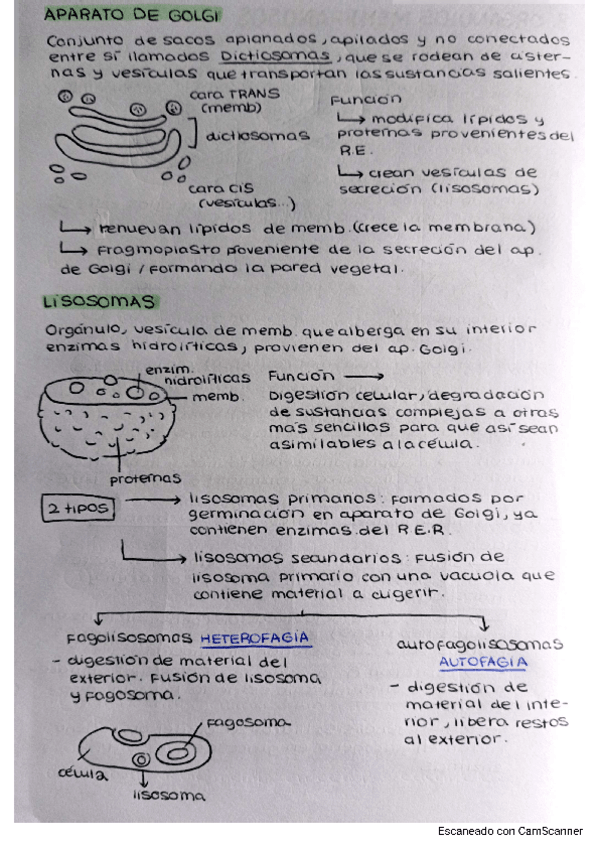 APARATO DE GOLGI
Conjunto de sacos aplanados, apilados y no conectados
entre sí llamados Dictiosomas, que se rodean de cister-
nas y vesículas que transportan las sustancias salientes.
cara TRANS
(memb)
dictiosomas
cara CIS
(vesículas...)
Función
modifica lípidos y
proteínas provenientes del
R.E.
crean vesículas de
secreción (lisosomas)
renuevan lípidos de memb. (crece la membrana)
Fragmoplasto proveniente de la secreción del ap.
de Golgi / formando la pared vegetal.
LISOSOMAS
Orgánulo, vesícula de memb. que alberga en su interior
enzimas hidrolíticas, provienen del ap. Golgi.
enzim.
hidrolíticas
memb.
proteínas
Función
Digestión celular, degradación
de sustancias complejas a otras
más sencillas para que así sean
asimilables a la célula.
2 tipos
lisosomas primarios: formados por
germinación en aparato de Golgi, ya
contienen enzimas del R.E.R.
lisosomas secundarios: fusión de
lisosoma primario con una vacuola que
contiene material a
fagolisosomas HETEROFAGIA
- digestión de material del
exterior. fusión de lisosoma
y fagosoma.
fagosoma
célula
lisosoma
autofagolisosomas
AUTOFAGIA
- digestión de
material del inte-
rior, libera restos
al exterior.
Escaneado con CamScanner